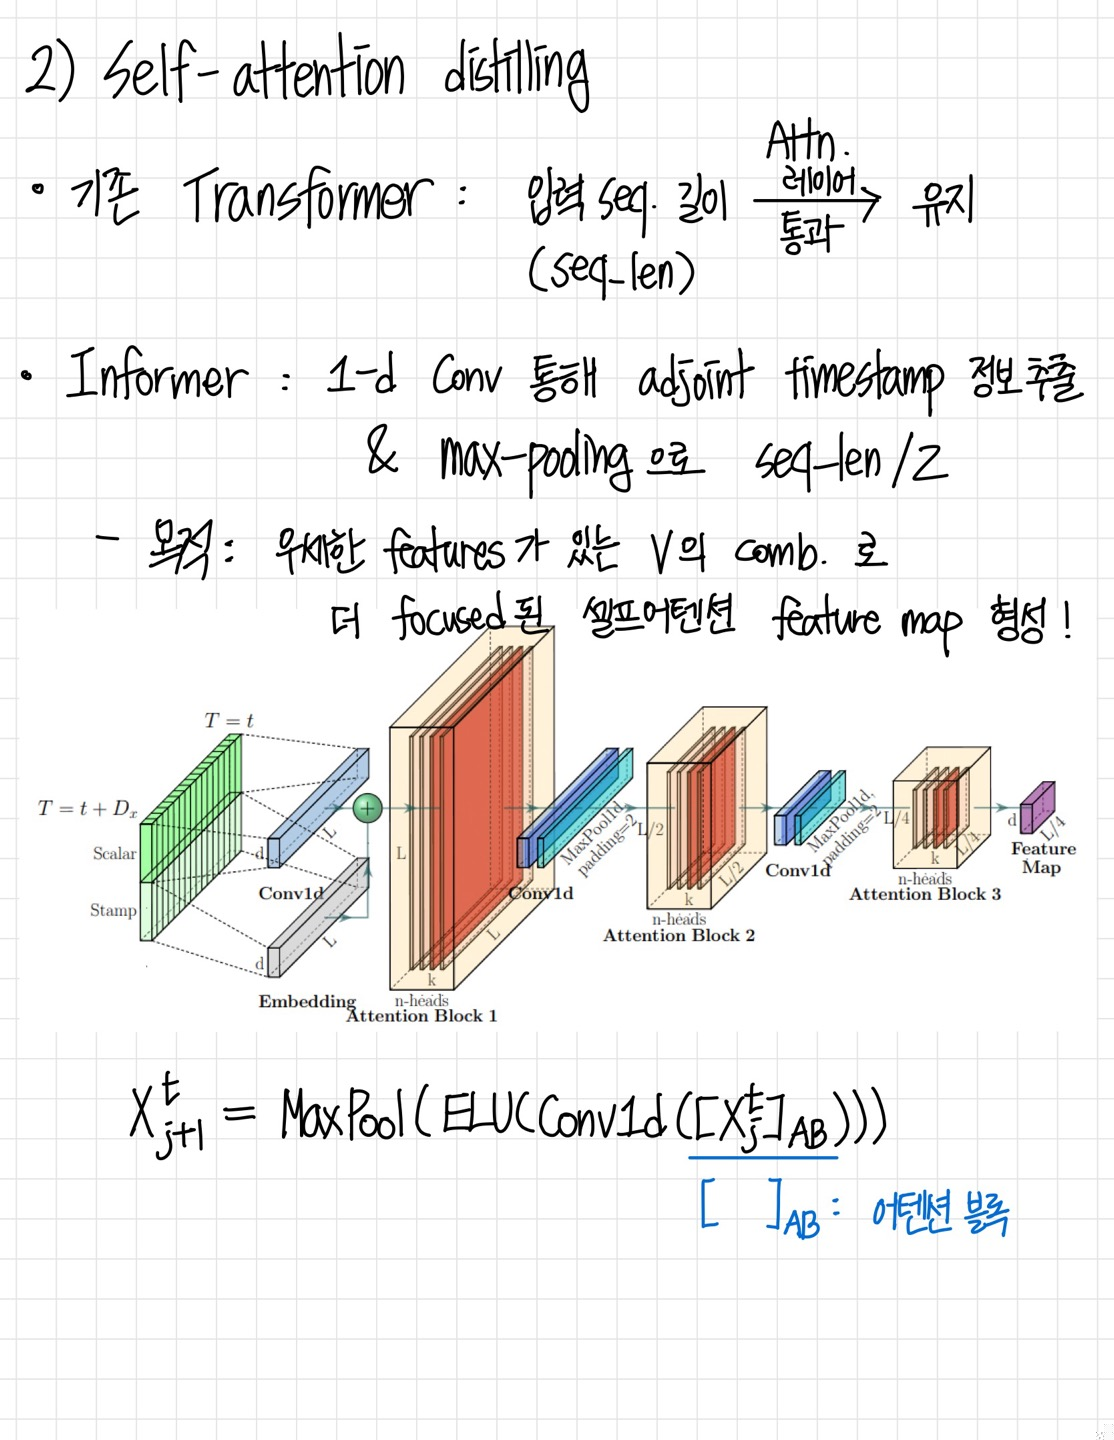 2) Self-attention distilling
Attn.
• 기존 Transformer : 입력 seq. 길이 레이어 → 유지
통과
(seq-len)
• Informer : 1-d Conv 통해 adjoint timestamp 정보 추출
& max-pooling 으로 seq-len/2
- 목적 : 우세한 features가 있는 V의 comb. 로
더 focused된 셀프어텐션 feature map 형성!
T = t
T = t + Dₓ
Scalar
Stamp
d
L
Conv1d
d
L
Embedding
+
L
L
k
n-heads
Attention Block 1
Conv1d
MaxPool1d,
padding=2
L/2
L/2
k
n-heads
Attention Block 2
Conv1d
MaxPool1d,
padding=2
L/4
L/4
k
n-heads
Attention Block 3
d
L/4
Feature
Map
X^t_{j+1} = MaxPool(ELU(Conv1d([X^t_j]_{AB})))
[ ]_{AB} : 어텐션 블록